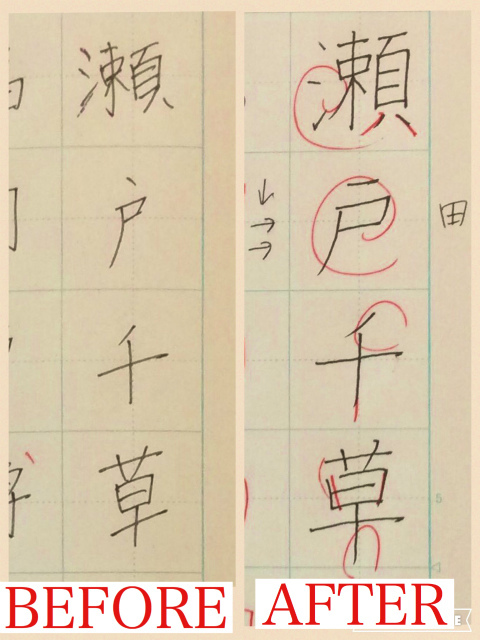 瀬戸千草
瀬戸千草
田
5
BEFORE
AFTER